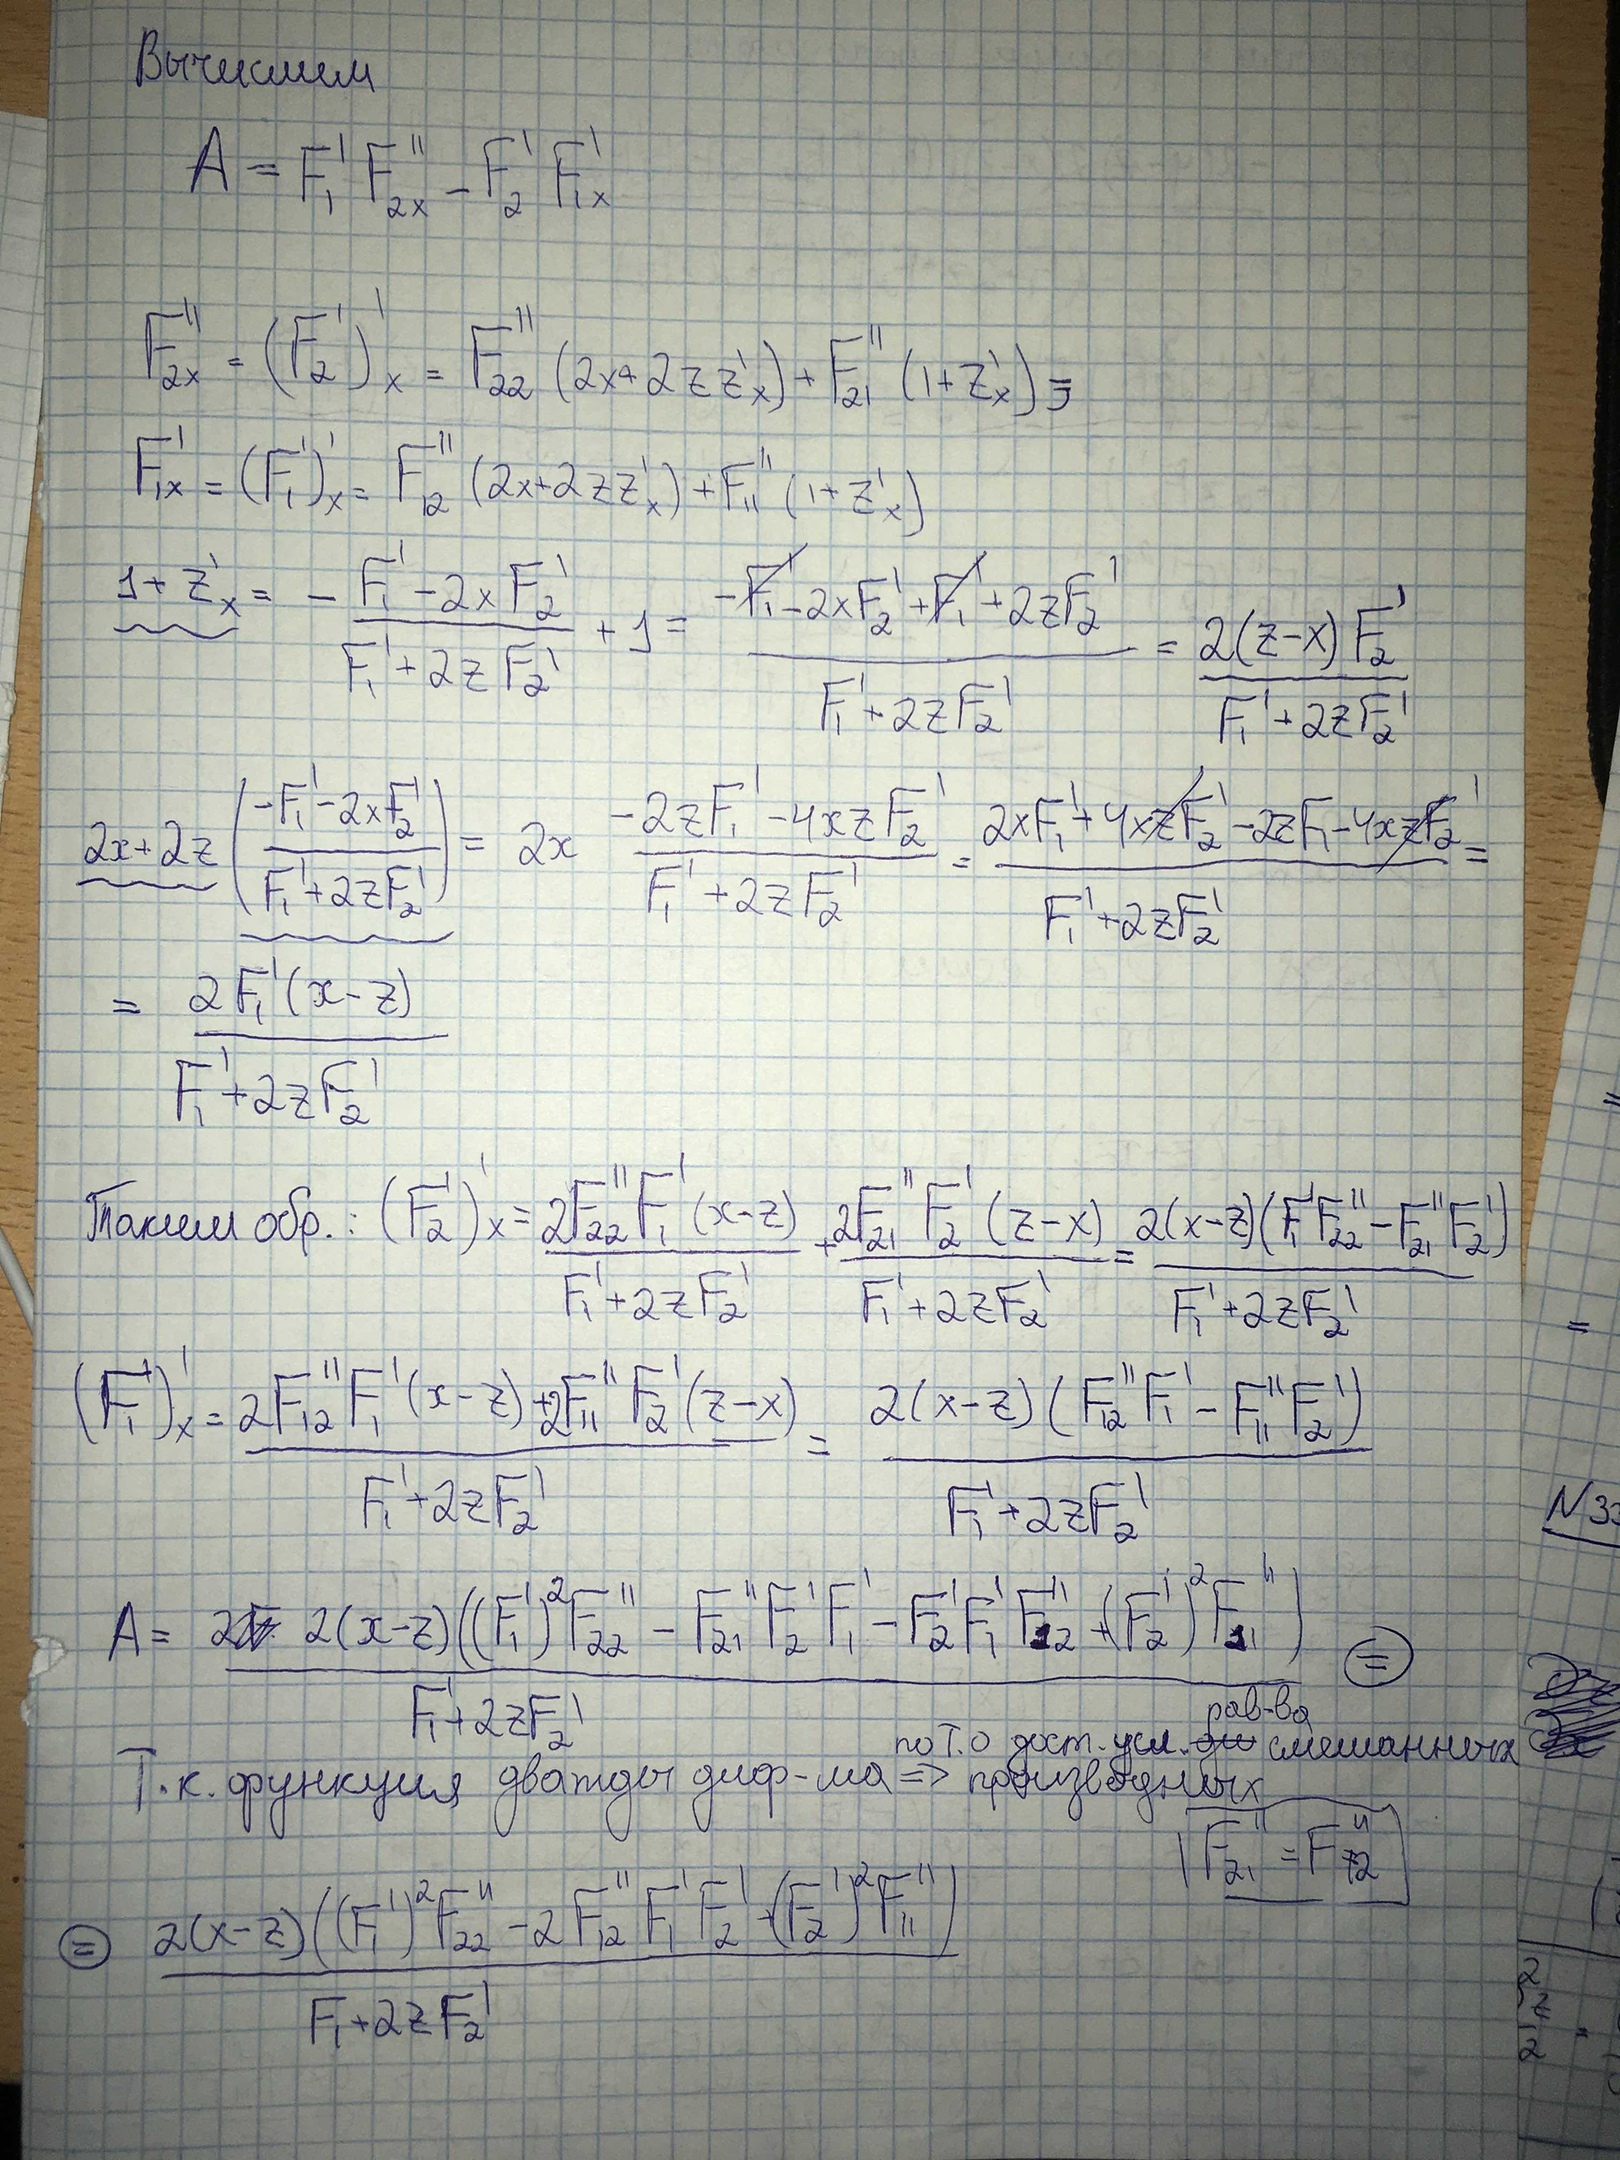 Вычислим
A = F₁' F₂ₓ'' - F₂' F₁ₓ'
F₂ₓ'' = (F₂')ₓ' = F₂₂'' (2x + 2z zₓ') + F₂₁'' (1 + zₓ') =
F₁ₓ' = (F₁')ₓ' = F₁₂'' (2x + 2z zₓ') + F₁₁'' (1 + zₓ')
1 + zₓ' = - (F₁' - 2xF₂')/(F₁' + 2zF₂') + 1 = (-F₁' - 2xF₂' + F₁' + 2zF₂')/(F₁' + 2zF₂') = 2(z-x)F₂'/(F₁' + 2zF₂')
2x + 2z ((-F₁' - 2xF₂')/(F₁' + 2zF₂')) = 2x (-2zF₁' - 4xzF₂')/(F₁' + 2zF₂') = (2xF₁' + 4xzF₂' - 2zF₁ - 4xzF₂')/(F₁' + 2zF₂') =
= 2F₁'(x-z)/(F₁' + 2zF₂')
Таким обр.: (F₂')ₓ' = 2F₂₂''F₁'(x-z)/(F₁' + 2zF₂') + 2F₂₁''F₂'(z-x)/(F₁' + 2zF₂') = 2(x-z)(F₁'F₂₂'' - F₂₁''F₂')/(F₁' + 2zF₂')
(F₁')ₓ' = (2F₁₂''F₁'(x-z) + 2F₁₁''F₂'(z-x))/(F₁' + 2zF₂') = 2(x-z)(F₁₂''F₁' - F₁₁''F₂')/(F₁' + 2zF₂')
A = 2(x-z)((F₁')²F₂₂'' - F₂₁''F₂'F₁' - F₂'F₁'F₁₂'' + (F₂')²F₁₁'')/(F₁' + 2zF₂') =
рав-ва
по Т. о дост. усл. смешанных
Т.к. функция дважды диф-ма => производных
F₂₁'' = F₁₂''
= 2(x-z)((F₁')²F₂₂'' - 2F₁₂''F₁'F₂' + (F₂')²F₁₁'')/(F₁ + 2zF₂')